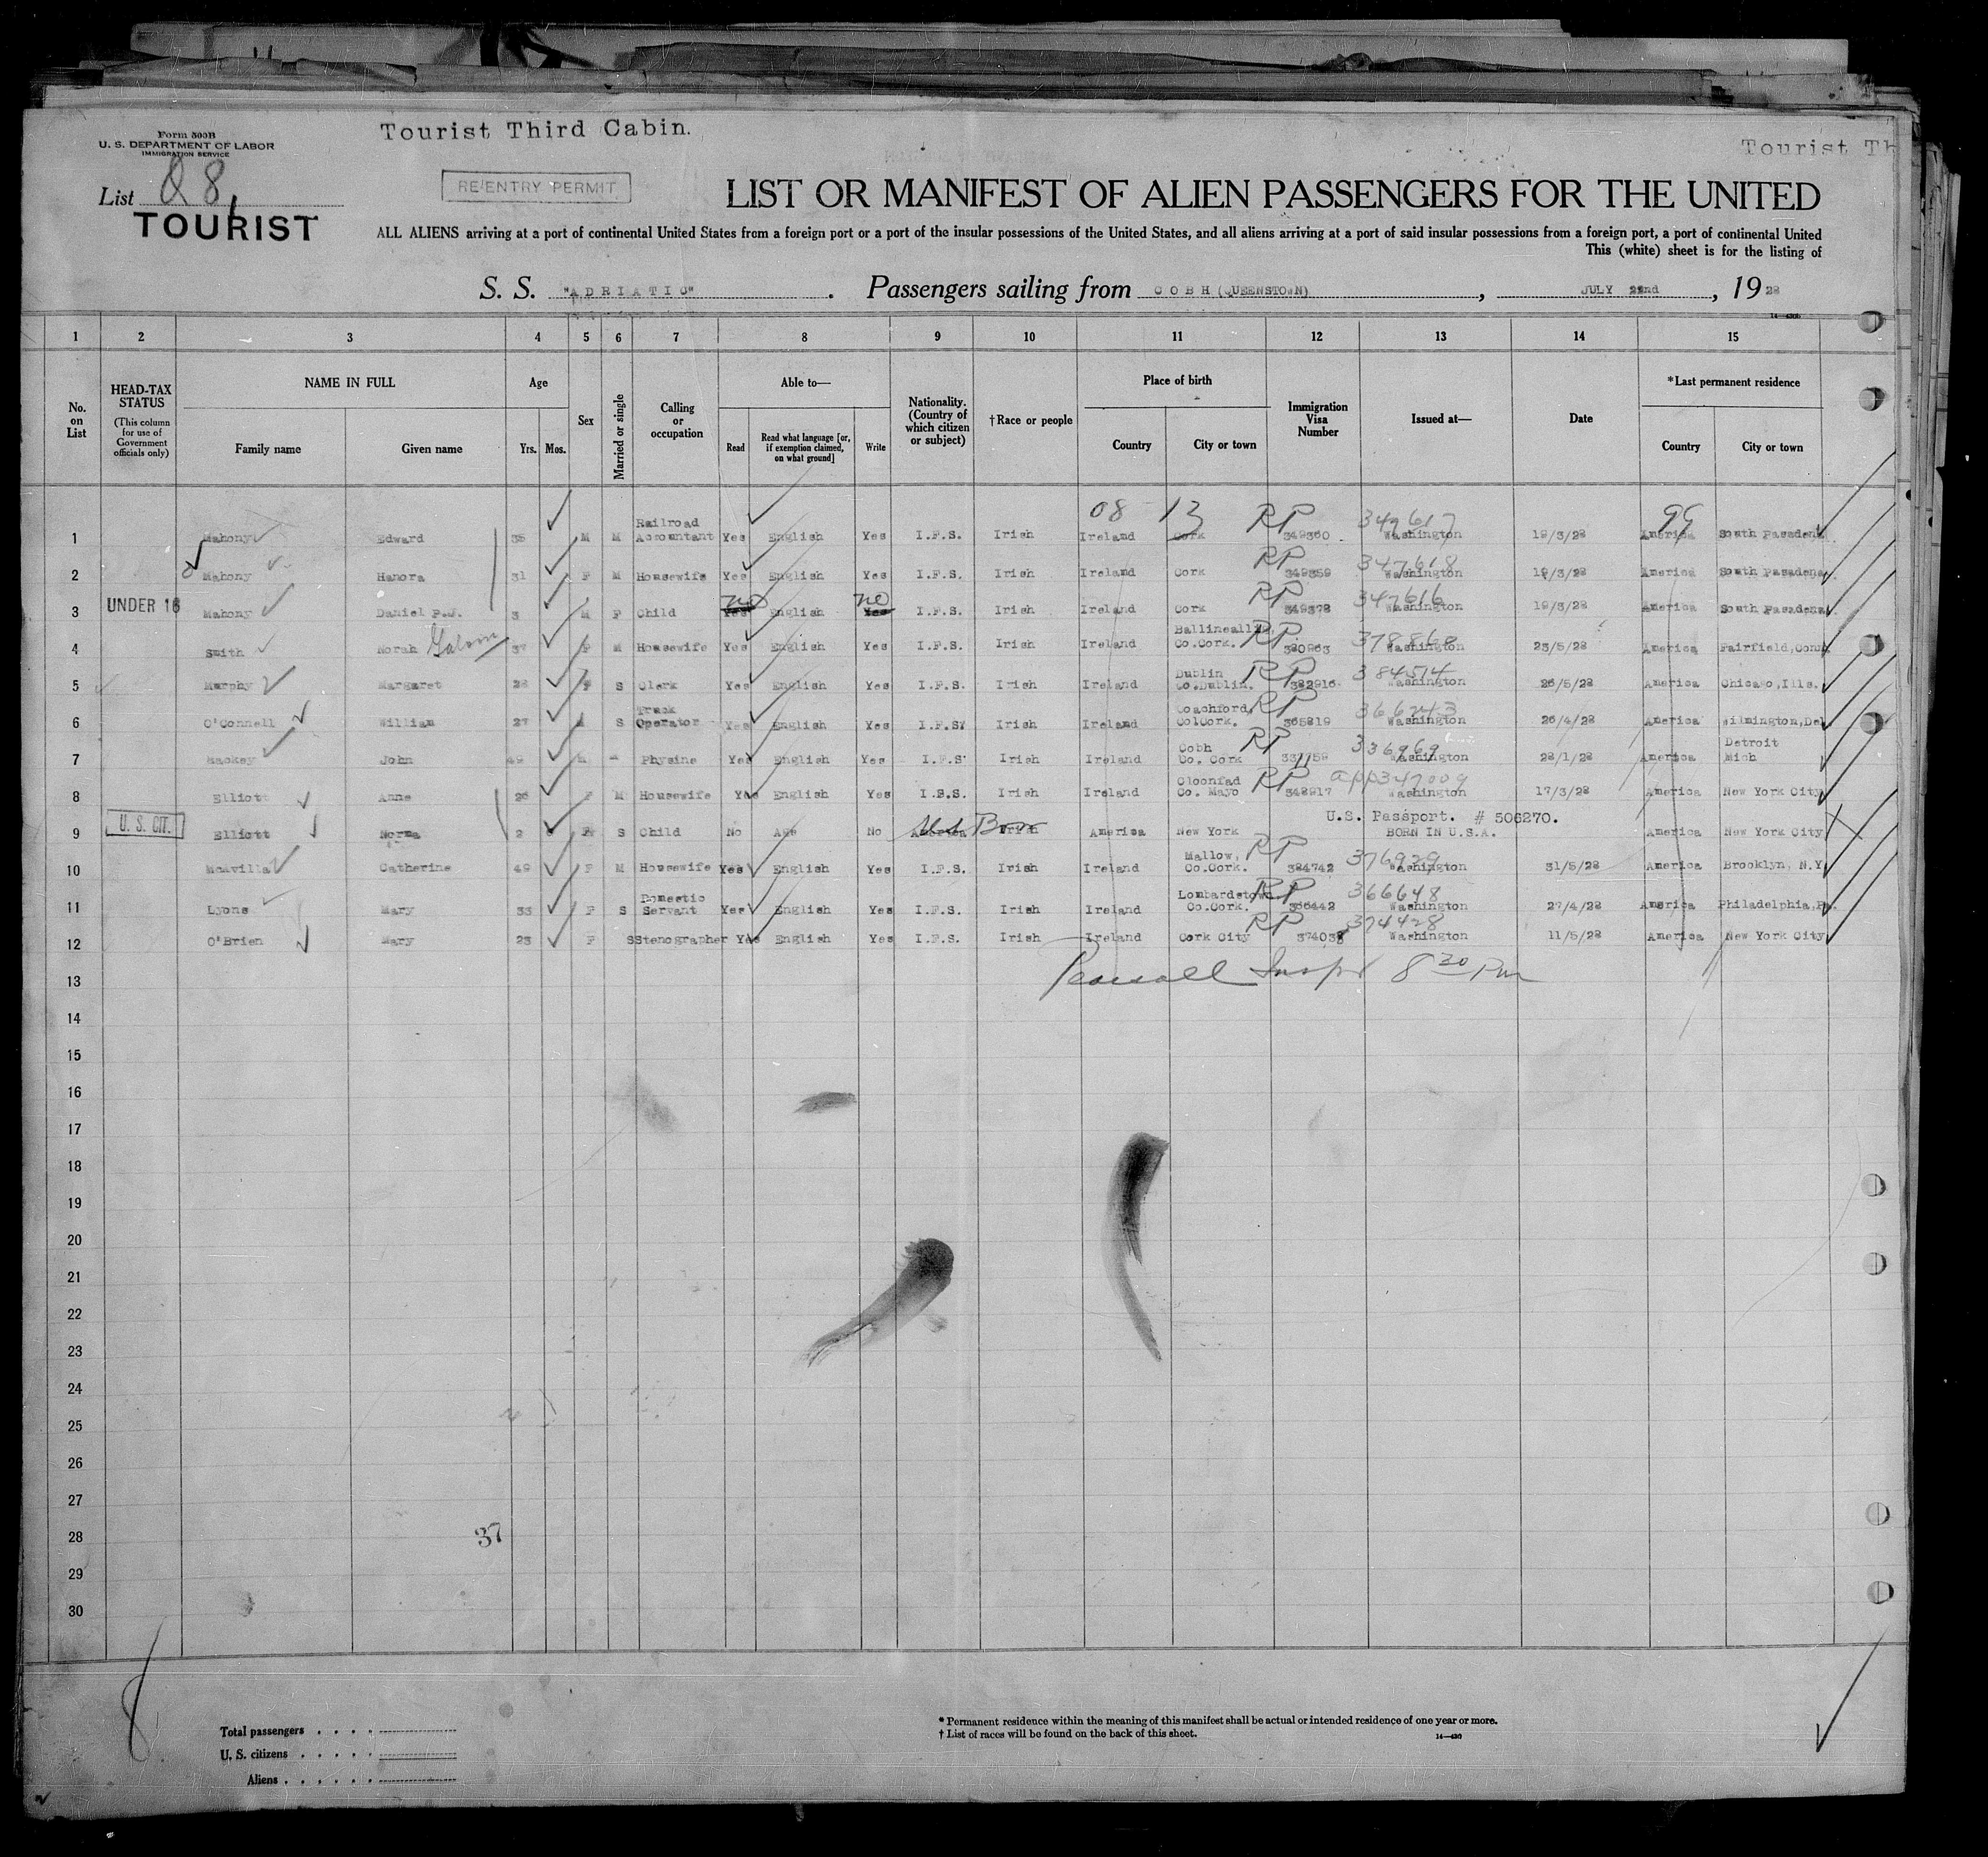 Form 500B
U. S. DEPARTMENT OF LABOR
IMMIGRATION SERVICE
Tourist Third Cabin.
Tourist Th
List 28,
TOURIST
RE/ENTRY PERMIT
LIST OR MANIFEST OF ALIEN PASSENGERS FOR THE UNITED
ALL ALIENS arriving at a port of continental United States from a foreign port or a port of the insular possessions of the United States, and all aliens arriving at a port of said insular possessions from a foreign port, a port of continental United
This (white) sheet is for the listing of
S. S. "ADRIATIC" . Passengers sailing from COBH (QUEENSTOWN) , JULY 22nd , 1928
1 2 3 4 5 6 7 8 9 10 11 12 13 14 15
No. on List
HEAD-TAX STATUS
(This column for use of Government officials only)
NAME IN FULL
Family name Given name
Age
Yrs. Mos.
Sex
Married or single
Calling or occupation
Able to—
Read
Read what language [or, if exemption claimed, on what ground]
Write
Nationality. (Country of which citizen or subject)
†Race or people
Place of birth
Country City or town
Immigration Visa Number
Issued at—
Date
*Last permanent residence
Country City or town
08 13 RP 349617 99
1 Mahony Edward 35 M M Railroad Accountant Yes English Yes I.F.S. Irish Ireland Cork 349360 Washington 19/3/28 America South Pasadena
RP 347618
2 Mahony Hanora 31 F M Housewife Yes English Yes I.F.S. Irish Ireland Cork 349359 Washington 19/3/28 America South Pasadena
no no RP 347616
3 UNDER 16 Mahony Daniel P.J. 3 M F Child Yes English Yes I.F.S. Irish Ireland Cork 349378 Washington 19/3/28 America South Pasadena
4 Smith Norah 37 F M Housewife Yes English Yes I.F.S. Irish Ireland Co.Cork. RP 380963 Washington 23/5/28 America Fairfield, Conn
5 Murphy Margaret 28 F S Clerk Yes English Yes I.F.S. Irish Ireland Dublin Co.Dublin. RP 382916 384514 Washington 26/5/28 America Chicago, Ills.
6 O'Connell William 27 S Track Operator Yes English Yes I.F.S. Irish Ireland Coachford, Co.Cork. RP 365819 366243 Washington 26/4/28 America Wilmington, Del
7 Mackey John 49 Physine Yes English Yes I.F.S. Irish Ireland Cobh Co. Cork RP 336969 Washington 28/1/28 America Detroit Mich
8 Elliott Anne 26 F M Housewife Yes English Yes I.F.S. Irish Ireland Cloonfad Co. Mayo RP 348917 app 347009 Washington 17/3/28 America New York City
U.S. Passport. # 506270.
9 U. S. CIT. Elliott Norma 2 F S Child No Age No America U.S. Born Irish America New York BORN IN U.S.A. America New York City
10 McAvilla Catherine 49 F M Housewife Yes English Yes I.F.S. Irish Ireland Mallow, Co.Cork. RP 384742 376929 Washington 31/5/28 America Brooklyn, N.Y
11 Lyons Mary 33 F S Domestic Servant Yes English Yes I.F.S. Irish Ireland Lombardstown Co.Cork. RP 366442 366648 Washington 27/4/28 America Philadelphia, Pa.
12 O'Brien Mary 23 F S Stenographer Yes English Yes I.F.S. Irish Ireland Cork City RP 374038 374428 Washington 11/5/28 America New York City
Insp 8 30 Pm
13
14
15
16
17
18
19
20
21
22
23
24
25
26
27
28 37
29
30
8
Total passengers . . . .
U. S. citizens . . . . .
Aliens . . . . . .
* Permanent residence within the meaning of this manifest shall be actual or intended residence of one year or more.
† List of races will be found on the back of this sheet.
14—430